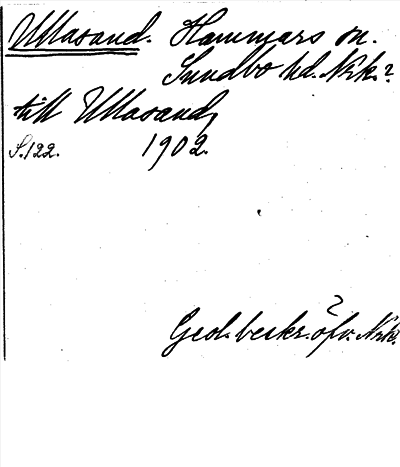 Ullasand. Hammars sn.
Sundbo hd. Nrk.?
till Ullasand,
S.122. 1902.
?
Geol. beskr. öfv. Nrk.